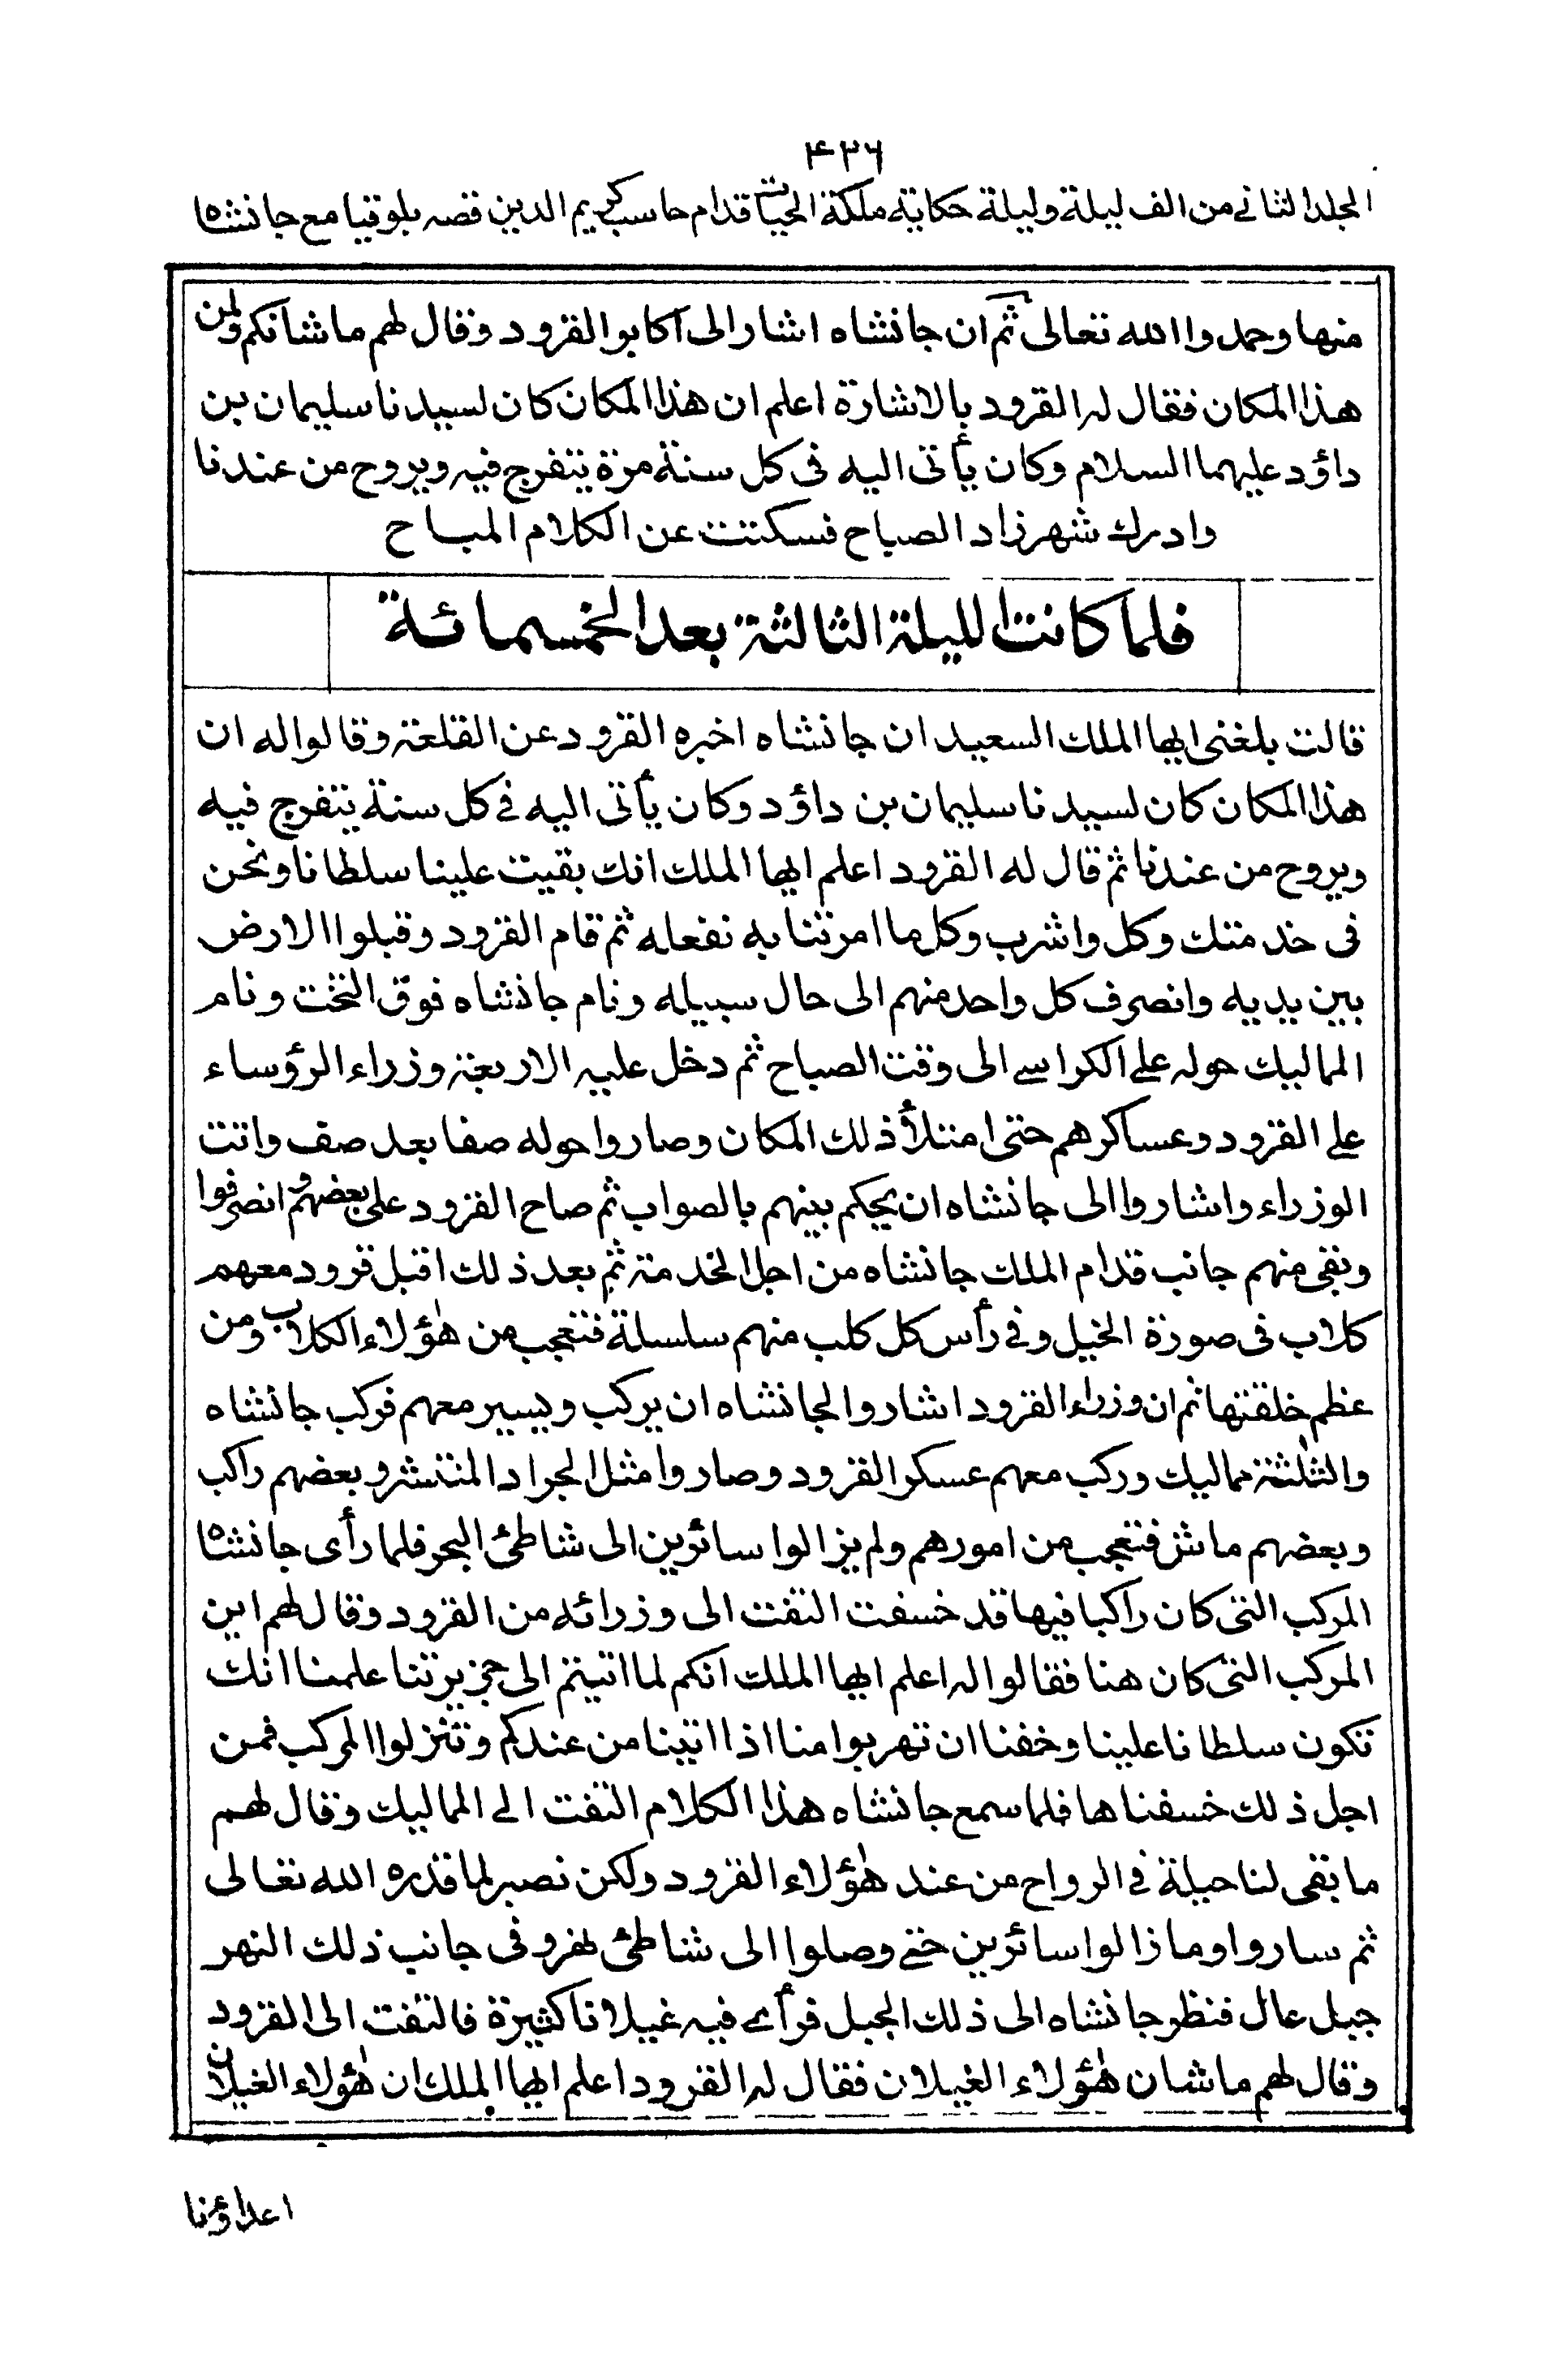 ۴۳۶
الجلد الثاني من الف ليلة وليلة حكاية ملكة الحيات قدام حاسب كريم الدين قصه بلوقيا مع جانشاه
منها وحمدوا الله تعالى ثم ان جانشاه اشار الى اكابر القرود وقال لهم ما شانكم ولمن
هذا المكان فقال له القرود بالاشارة اعلم ان هذا المكان كان لسيدنا سليمان بن
داؤد عليهما السلام وكان يأتى اليه فى كل سنة مرة يتفرج فيه ويروح من عندنا
وادرك شهرزاد الصباح فسكتت عن الكلام المباح
فلما كانت الليلة الثالثة بعد الخمسمائة
قالت بلغنى ايها الملك السعيد ان جانشاه اخبره القرود عن القلعة وقالوا له ان
هذا المكان كان لسيدنا سليمان بن داؤد وكان يأتى اليه في كل سنة يتفرج فيه
ويروح من عندنا ثم قال له القرود اعلم ايها الملك انك بقيت علينا سلطانا ونحن
فى خدمتك وكل واشرب وكل ما امرتنا به نفعله ثم قام القرود وقبلوا الارض
بين يديه وانصرف كل واحد منهم الى حال سبيله ونام جانشاه فوق التخت ونام
المماليك حوله على الكراسے الى وقت الصباح ثم دخل عليه الاربعة وزراء الرؤساء
على القرود وعساكرهم حتى امتلأ ذلك المكان وصاروا حوله صفا بعد صف واتت
الوزراء واشاروا الى جانشاه ان يحكم بينهم بالصواب ثم صاح القرود على بعضهم وانصرفوا
وبقى منهم جانب قدام الملك جانشاه من اجل الخدمة ثم بعد ذلك اقبل قرود معهم
كلاب فى صورة الخيل وفي رأس كل كلب منهم سلسلة فتعجب من هٰؤلاء الكلاب ومن
عظم خلقتها ثم ان وزراء القرود اشاروا لجانشاه ان يركب ويسير معهم فركب جانشاه
والثلٰثة مماليك وركب معهم عسكر القرود وصاروا مثل الجراد المنتشر وبعضهم راكب
وبعضهم ماش فتعجب من امورهم ولم يزالوا سائرين الى شاطئ البحر فلما رأى جانشاه
المركب التى كان راكبا فيها قد خسفت التفت الى وزرائه من القرود وقال لهم اين
المركب التى كان هنا فقالوا له اعلم ايها الملك انكم لما اتيتم الى جزيرتنا علمنا انك
تكون سلطانا علينا وخفنا ان تهربوا منا اذا اتينا من عندكم وتنزلوا المركب فمن
اجل ذلك خسفناها فلما سمع جانشاه هذا الكلام التفت الے المماليك وقال لهم
ما بقى لنا حيلة في الرواح من عند هٰؤلاء القرود ولكن نصبر لما قدره الله تعالى
ثم ساروا وما زالوا سائرين حتے وصلوا الى شاطئ نهر وفى جانب ذلك النهر
جبل عال فنظر جانشاه الى ذلك الجبل فرأے فيه غيلانا كثيرة فالتفت الى القرود
وقال لهم ما شان هٰؤلاء الغيلان فقال له القرود اعلم ايها الملك ان هٰؤلاء الغيلان
اعداؤنا